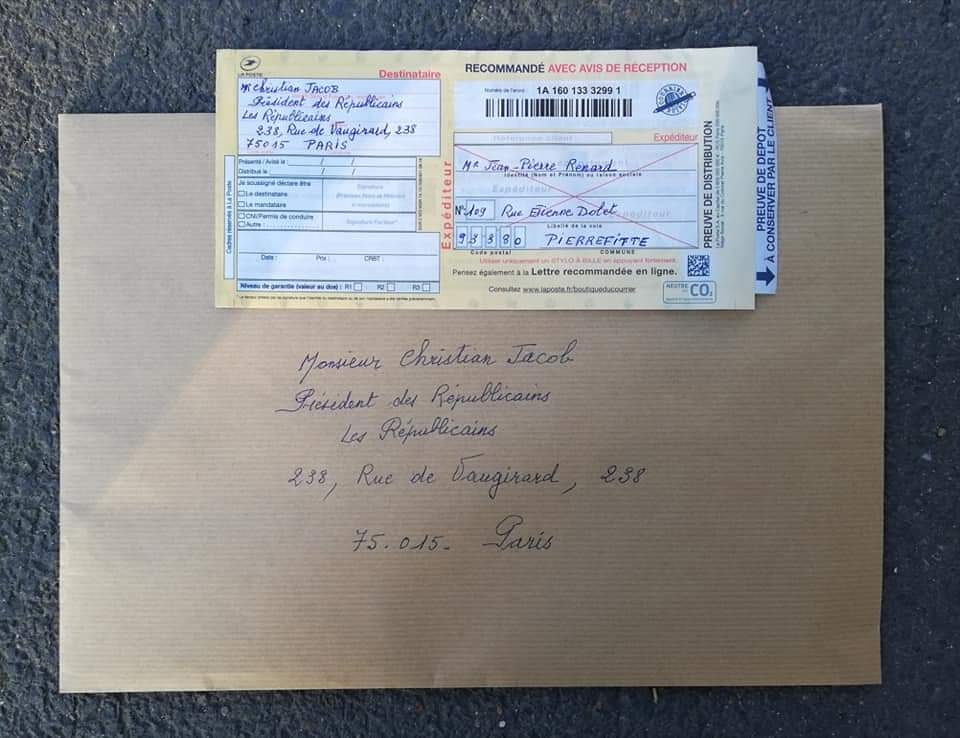 LA POSTE
Destinataire
Mr Christian JACOB
Président des Républicains
Les Républicains
238, Rue de Vaugirard, 238
75015 PARIS
Présenté / Avisé le : / /
Distribué le : / /
Je soussigné déclare être
Le destinataire
Le mandataire
CNI/Permis de conduire
Autre :
Signature
Signature Facteur*
Cadres réservés à La Poste
Date : Prix : CRBT :
Niveau de garantie (valeur au dos) : R1 R2 R3
RECOMMANDÉ AVEC AVIS DE RÉCEPTION
Numéro de l'envoi : 1A 160 133 3299 1
Référence client
Expéditeur
Expéditeur
Mr Jean-Pierre Renard
Identité (Nom et Prénom) ou raison sociale
Expéditeur
N° 109 Rue Etienne Dolet
Libellé de la voie
93380 PIERREFITTE
Code postal COMMUNE
Utiliser uniquement un STYLO À BILLE en appuyant fortement.
Pensez également à la Lettre recommandée en ligne.
Consultez www.laposte.fr/boutiqueducourrier
NEUTRE CO2
PREUVE DE DISTRIBUTION
PREUVE DE DÉPÔT
À CONSERVER PAR LE CLIENT
Monsieur Christian Jacob
Président des Républicains
Les Républicains
238, Rue de Vaugirard, 238
75.015. Paris